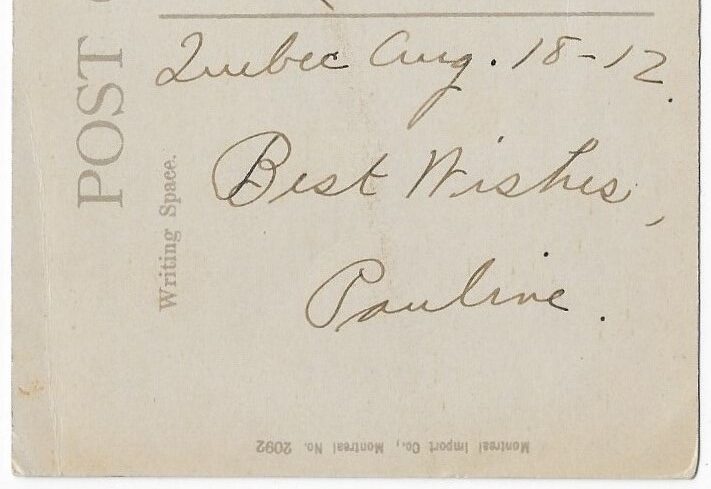 Quebec Aug. 18-12.
Best Wishes,
Pauline.
POST
Writing Space.
Montreal Import Co., Montreal No. 2092